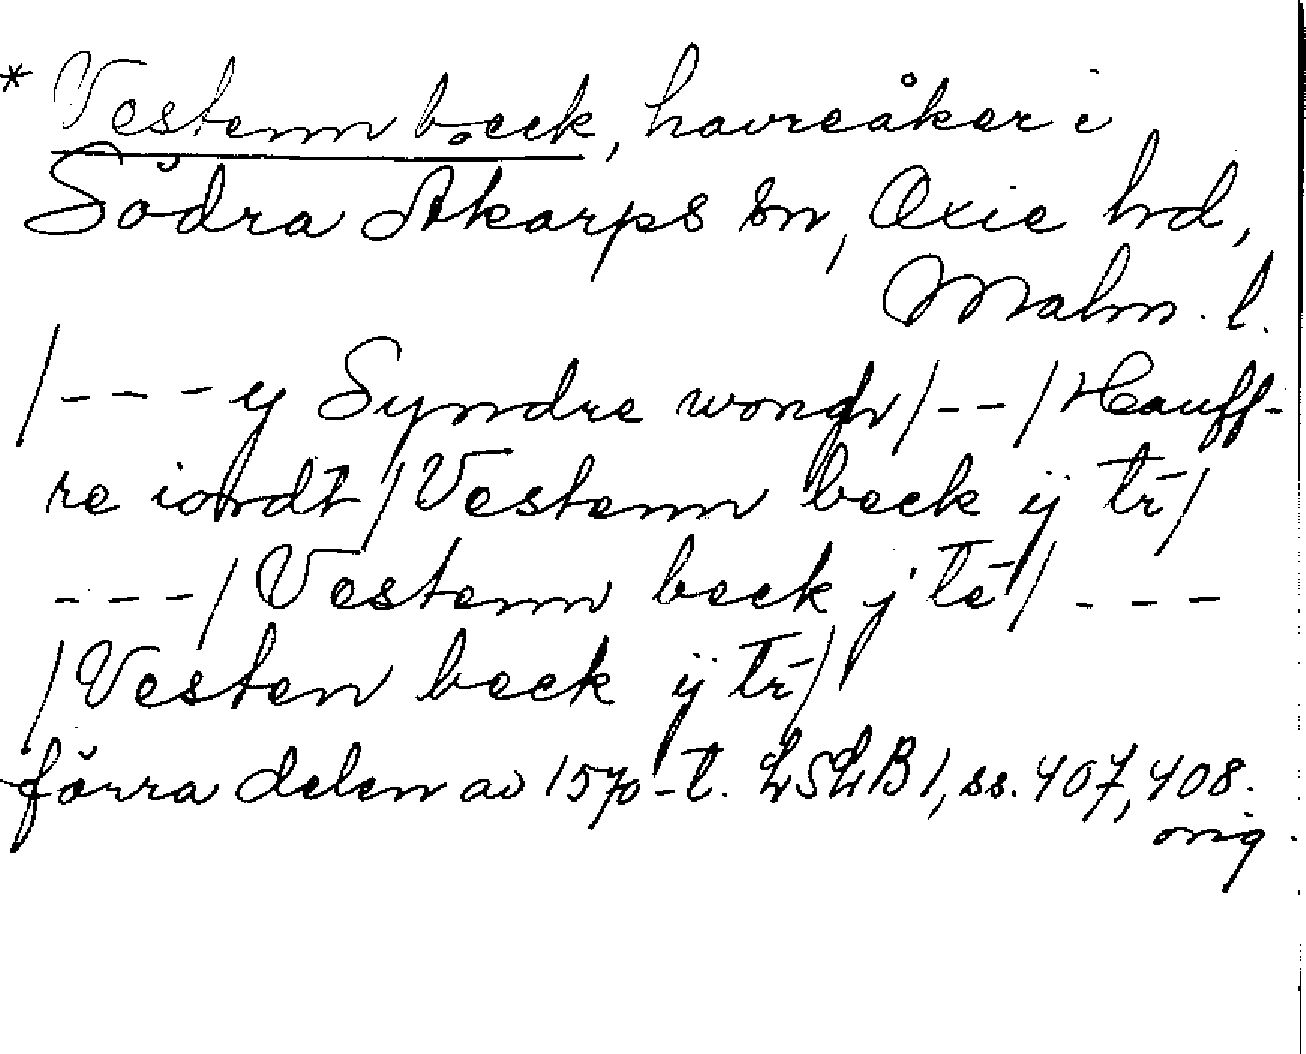 * Vestenn beck, havreåker i
Södra Åkarps sn, Oxie hd,
Malm. l.
/---y Syndre wongh/--/Hauff-
re iordt/Vestenn beck ij tr/
---/Vestenn beck j te/---
/Vesten beck ij tr/
förra delen av 1570-t. LSLB1, ss. 407, 408.
orig.